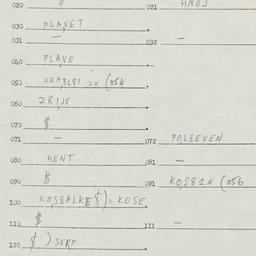 020 $ 021 HNOJ
030 PLAVET
031 — 032 —
040 PLAVE
050 >< (054
060 ZRIJE
070 $
071 — 072 POLSEVEN
080 HENT 081 —
090 $ 091 KOS81N (056
100 KOS8ALKE $) = KOSE
110 $ 111 —
120 $) SERP